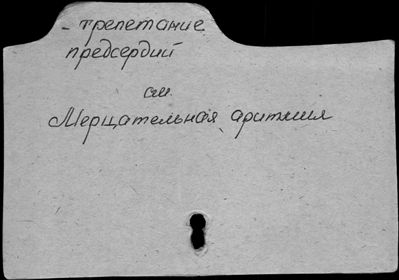 - трепетание
предсердий
см.
Мерцательная аритмия